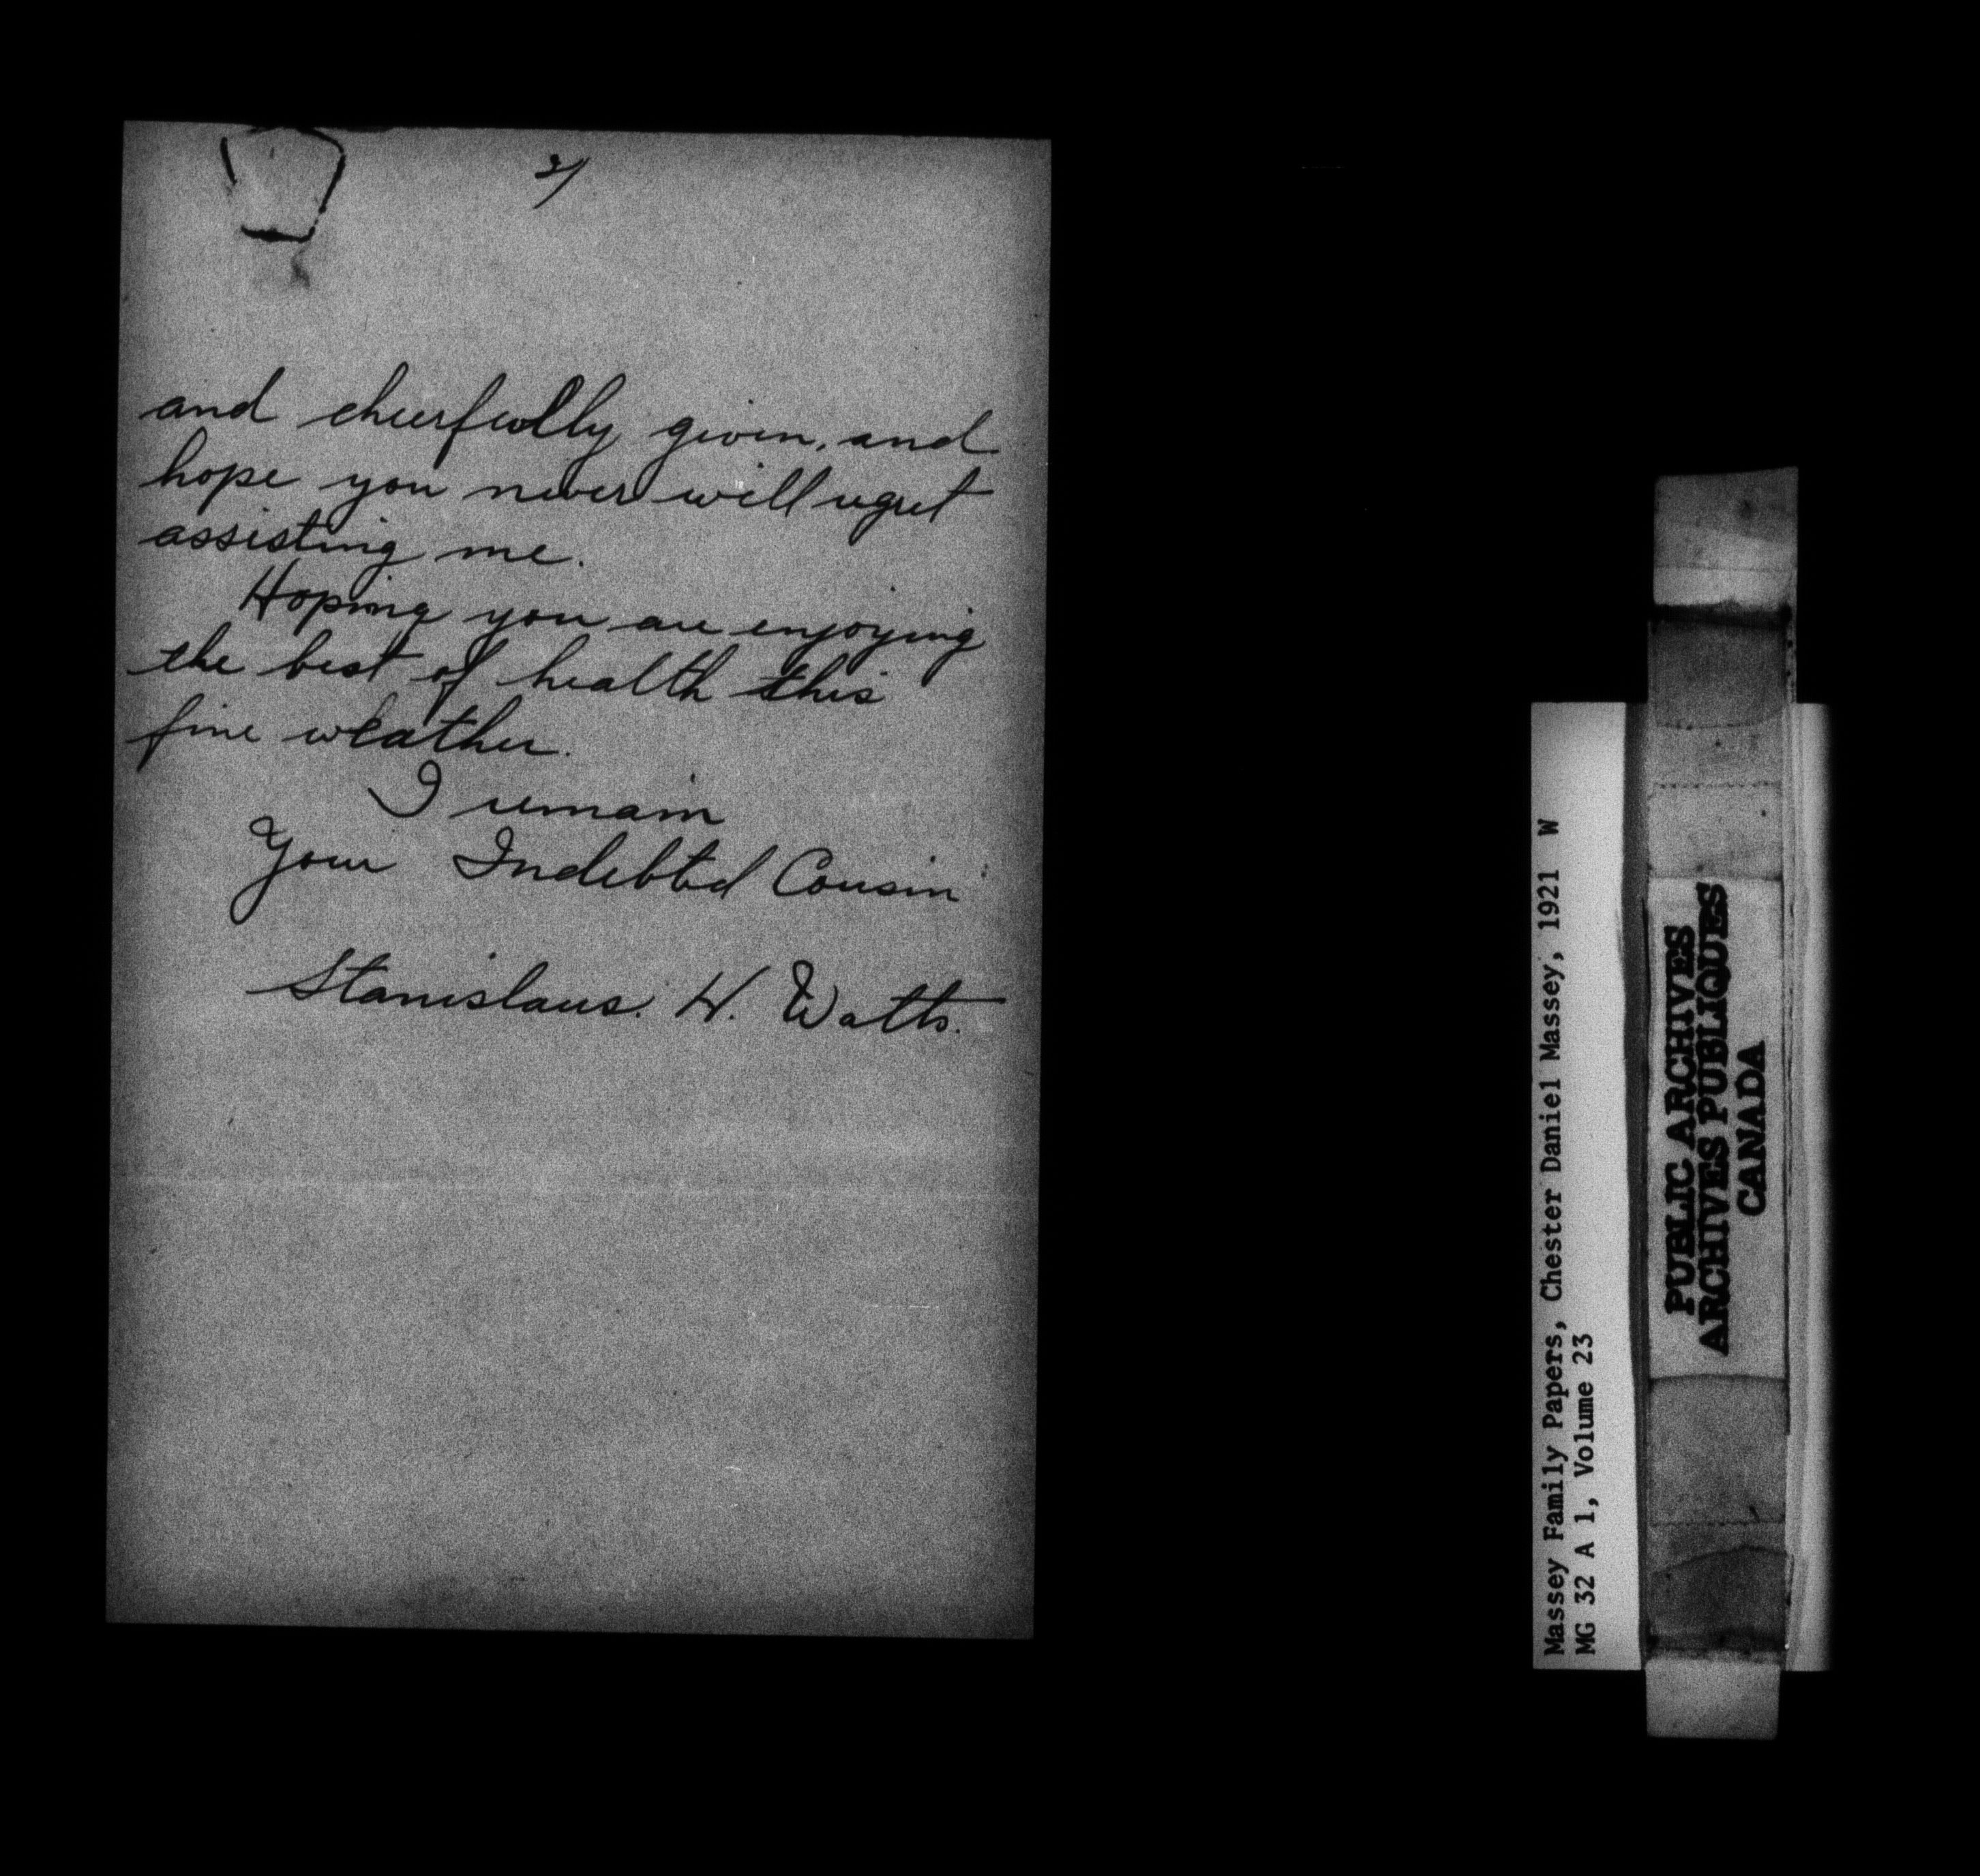 2/
and cheerfully given, and
hope you never will regret
assisting me.
Hoping you are enjoying
the best of health this
fine weather.
I remain
Your Indebted Cousin
Stanislaus. H. Watts.
Massey Family Papers, Chester Daniel Massey, 1921 W
MG 32 A 1, Volume 23
PUBLIC ARCHIVES
ARCHIVES PUBLIQUES
CANADA